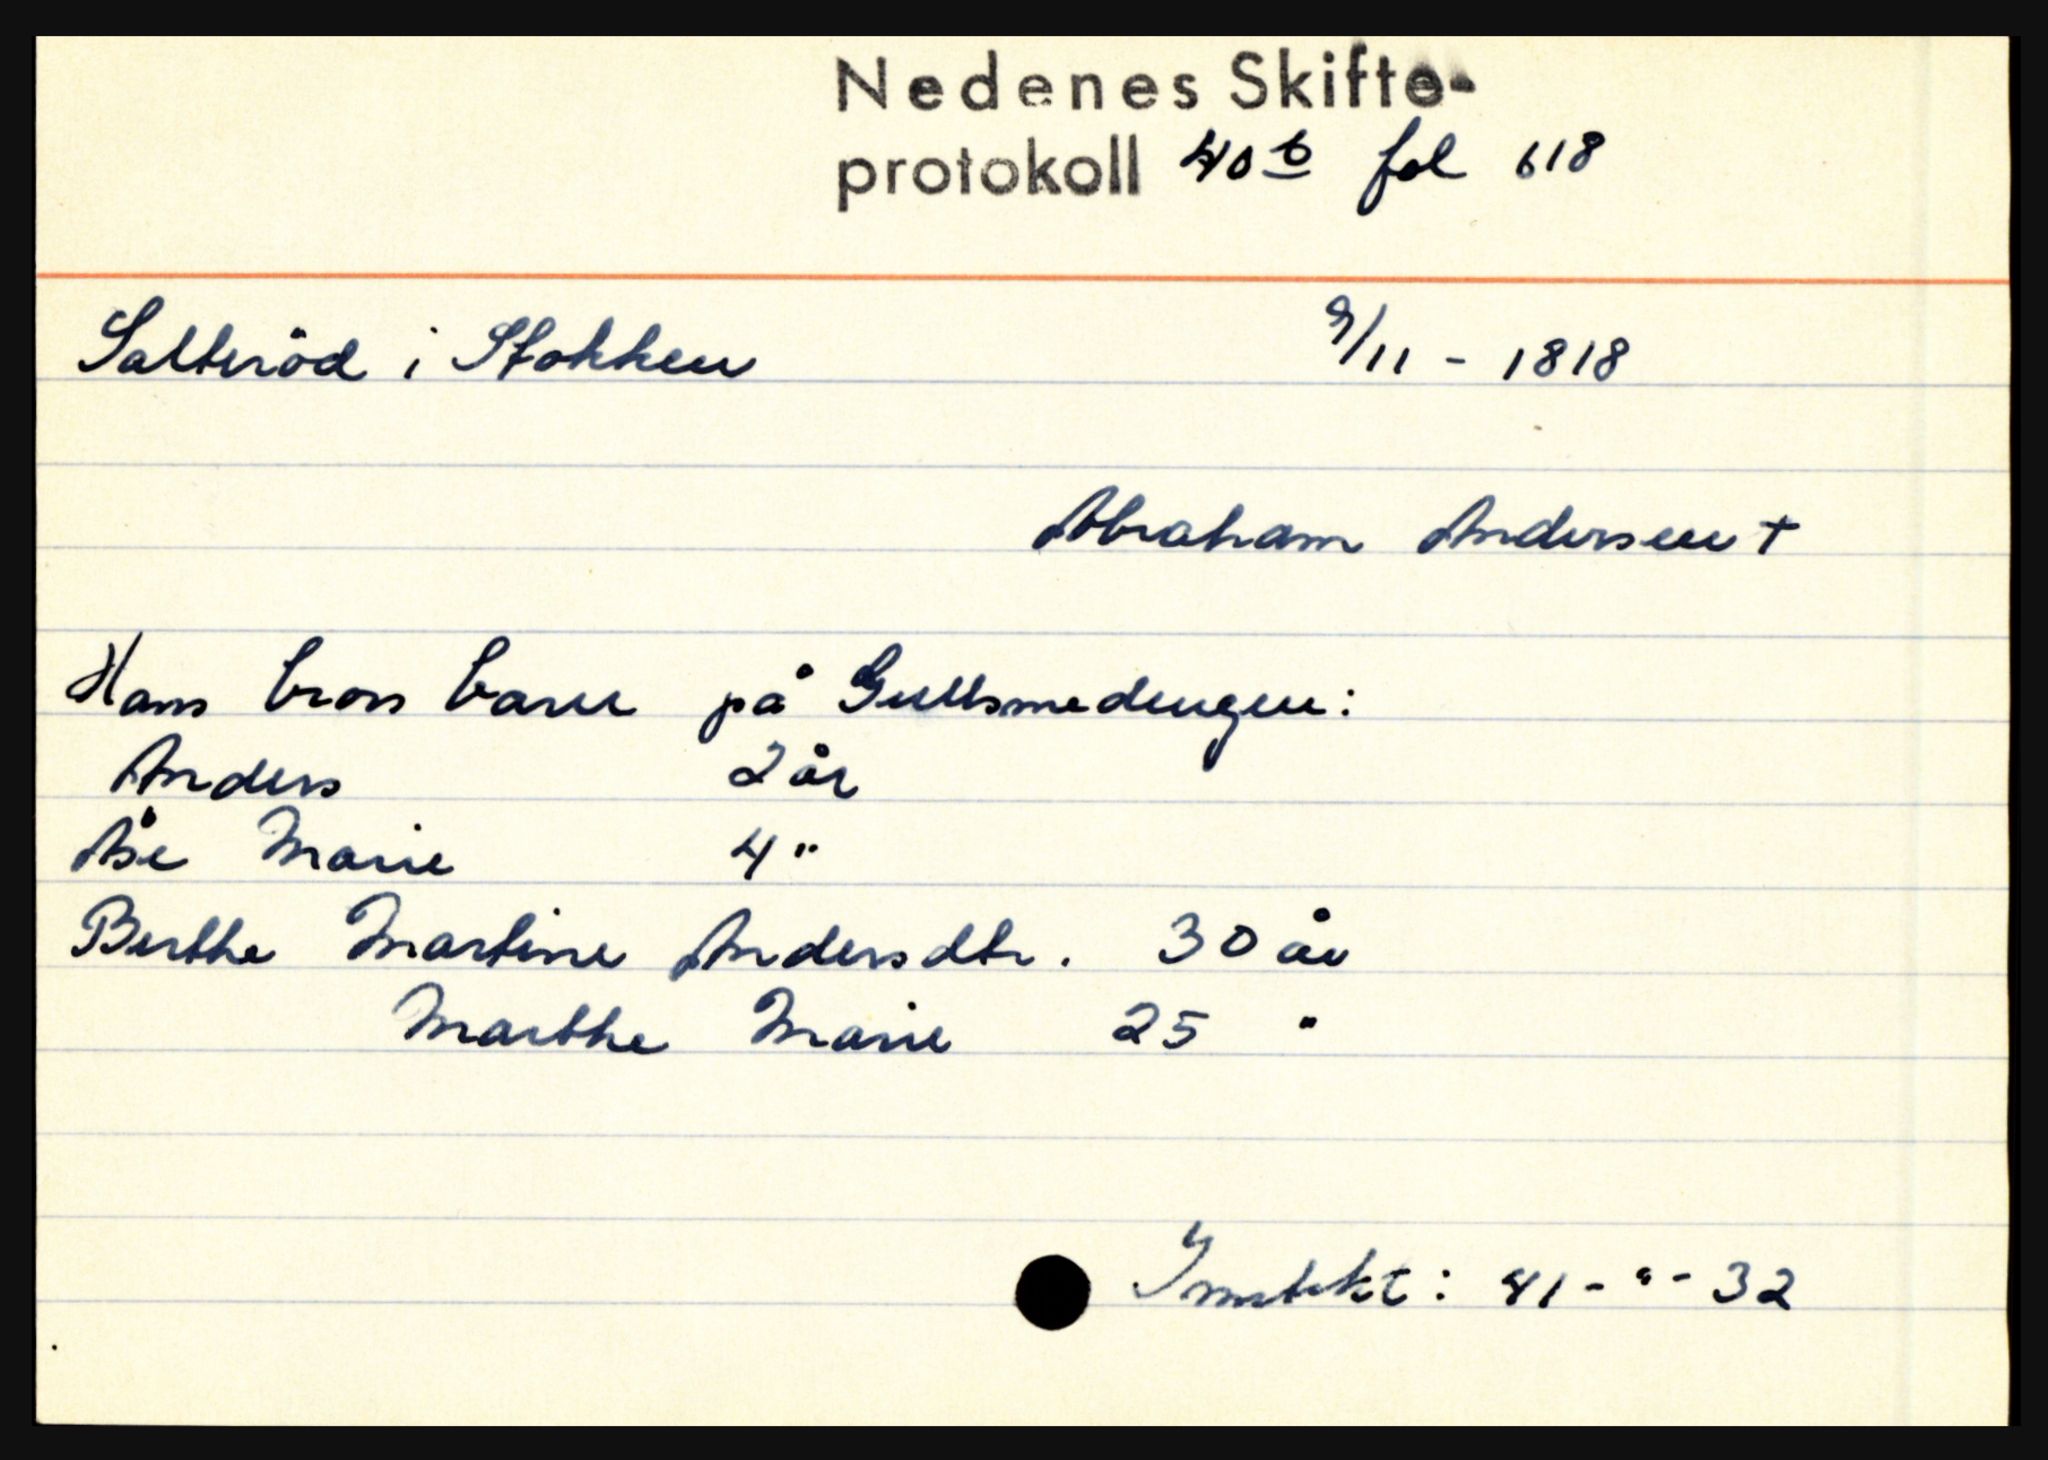 Nedenes Skifte-
protokoll 40 b fol 618
Salteröd i Stokken 9/11 - 1818
Abraham Andersen †
Hans brors barn på Gullsmedengen:
Anders 2 år
Åse Marie 4 "
Berthe Martine Andersdtr. 30 år
Marthe Marie 25 "
Inntekt: 41 - " - 32